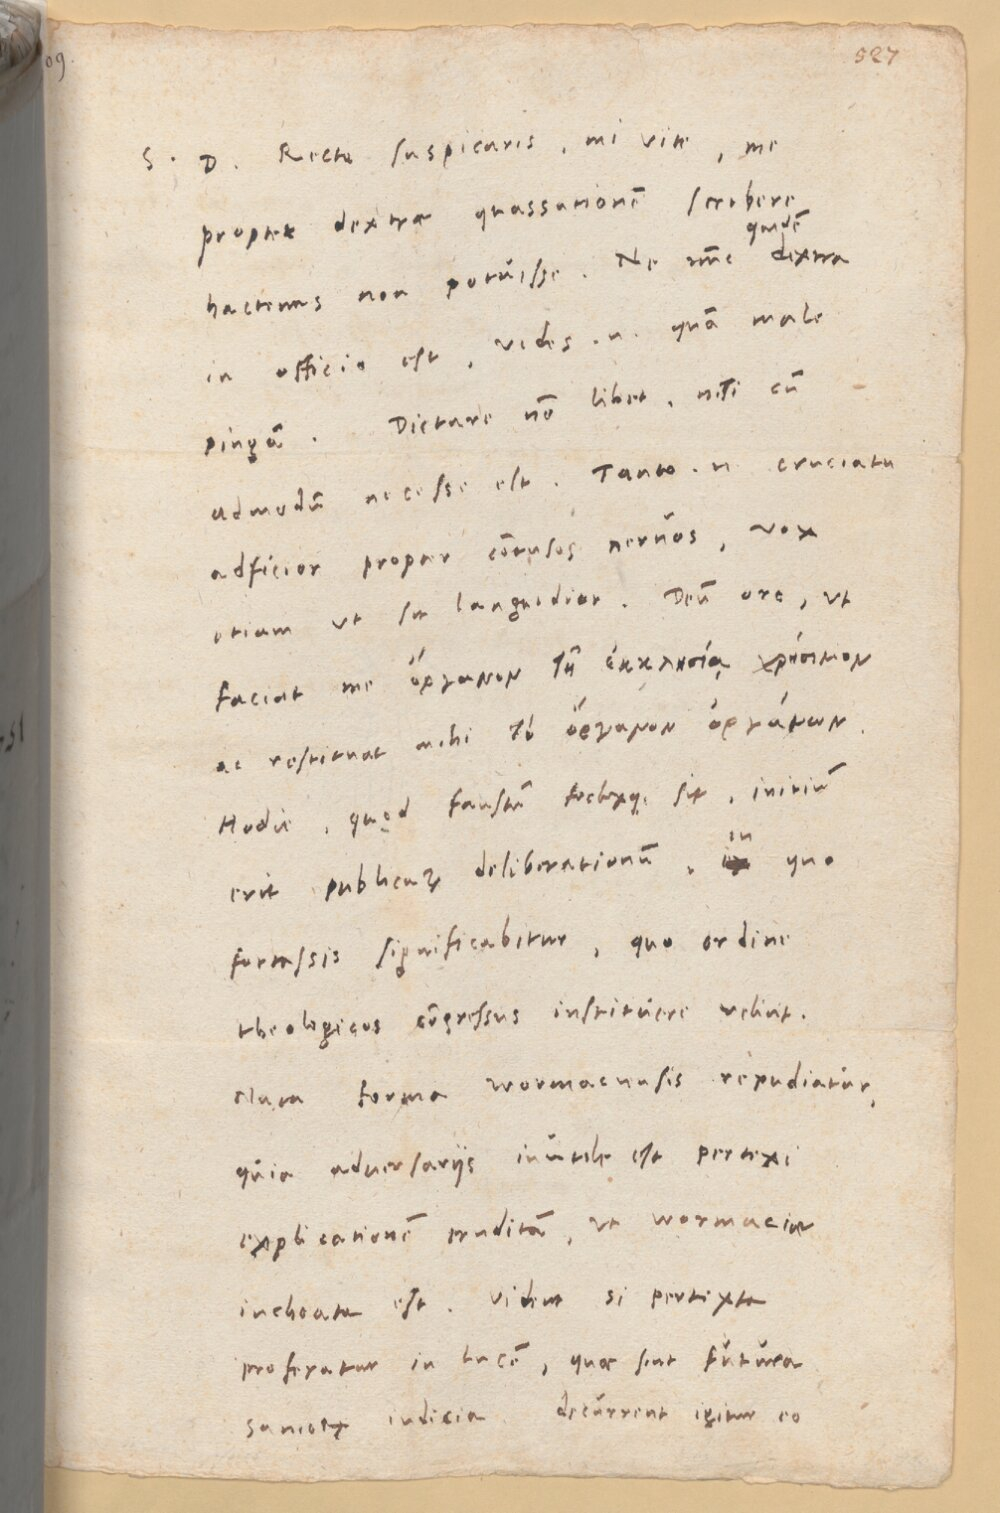 527
09.
S. D. Recte suspicaris, mi Vite, me
propter dextræ quassationē scribere
hactenus non potuisse. Ne nūc quidē dextra
in officio est, vides .n. quā male
pingā. Dictare nō libet, nisi cū
admodū necesse est. Tanto .n. cruciatu
adficior propter cōtusos neruos, vox
etiam ut sit languidior. Deū oro, ut
faciat me ὄργανον τῇ ἐκκλησίᾳ χρήσιμον
ac restituat mihi τὸ ὄργανον ὀργάνων.
Hodie, quod faustū felixq; sit, initiū
erit publicaꝝ deliberationū, in quo
fortassis significabitur, quo ordine
theologicos cōgressus instituere velint.
Nam forma Wormacensis repudiatur,
quia aduersarijs inutile est pertexi
explicationē eruditā, ut Wormaciæ
inchoata est. Vident si pertexta
proferatur in lucē, quæ sint futura
sanioꝝ iudicia. decurrent igitur eo